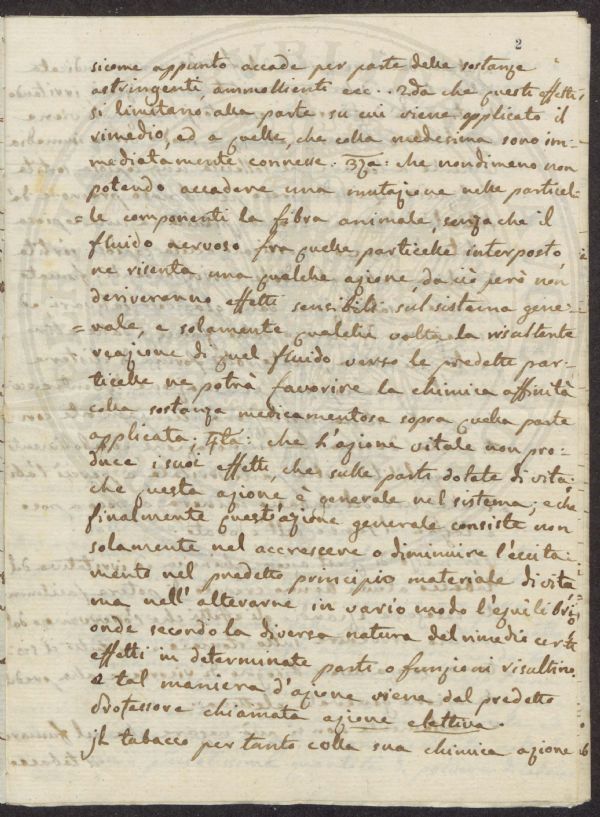 2
sicome appunto accade per parte delle sostanze
astringenti, ammollienti ecc.. 2da che questi effetti
si limitano alla parte su cui viene applicato il
rimedio, ed a quelle, che colla medesima sono im-
mediatamente connesse. 3za: che nondimeno non
potendo accadere una mutazione nelle particel-
=le componenti la fibra animale, senza che il
fluido nervoso fra quelle particelle interposto,
ne risenta una qualche azione, da ciò però non
deriveranno effetti sensibili sul sistema gene-
=rale, e solamente qualche volta la risultente
reazione di quel fluido verso le predette par-
ticelle ne potrà favorire la chimica affinità
colla sostanza medicamentosa sopra quella parte
applicata; 4ta: che l'azione vitale non pro-
duce i suoi effetti, che sulle parti dotate di vita;
che questa azione è generale nel sistema; e che
finalmente quest'azione generale consiste non
solamente nel accrescere o diminuire l'eccita-
mento nel predetto principio materiale di vita
ma nell'alterarne in vario modo l'equilibrio
onde secondo la diversa natura del rimedio certi
effetti in determinate parti o funzioni risultino.
e tal maniera d'azione viene dal predetto
Professore chiamata azione elettiva.
Il tabacco per tanto colla sua chimica azione